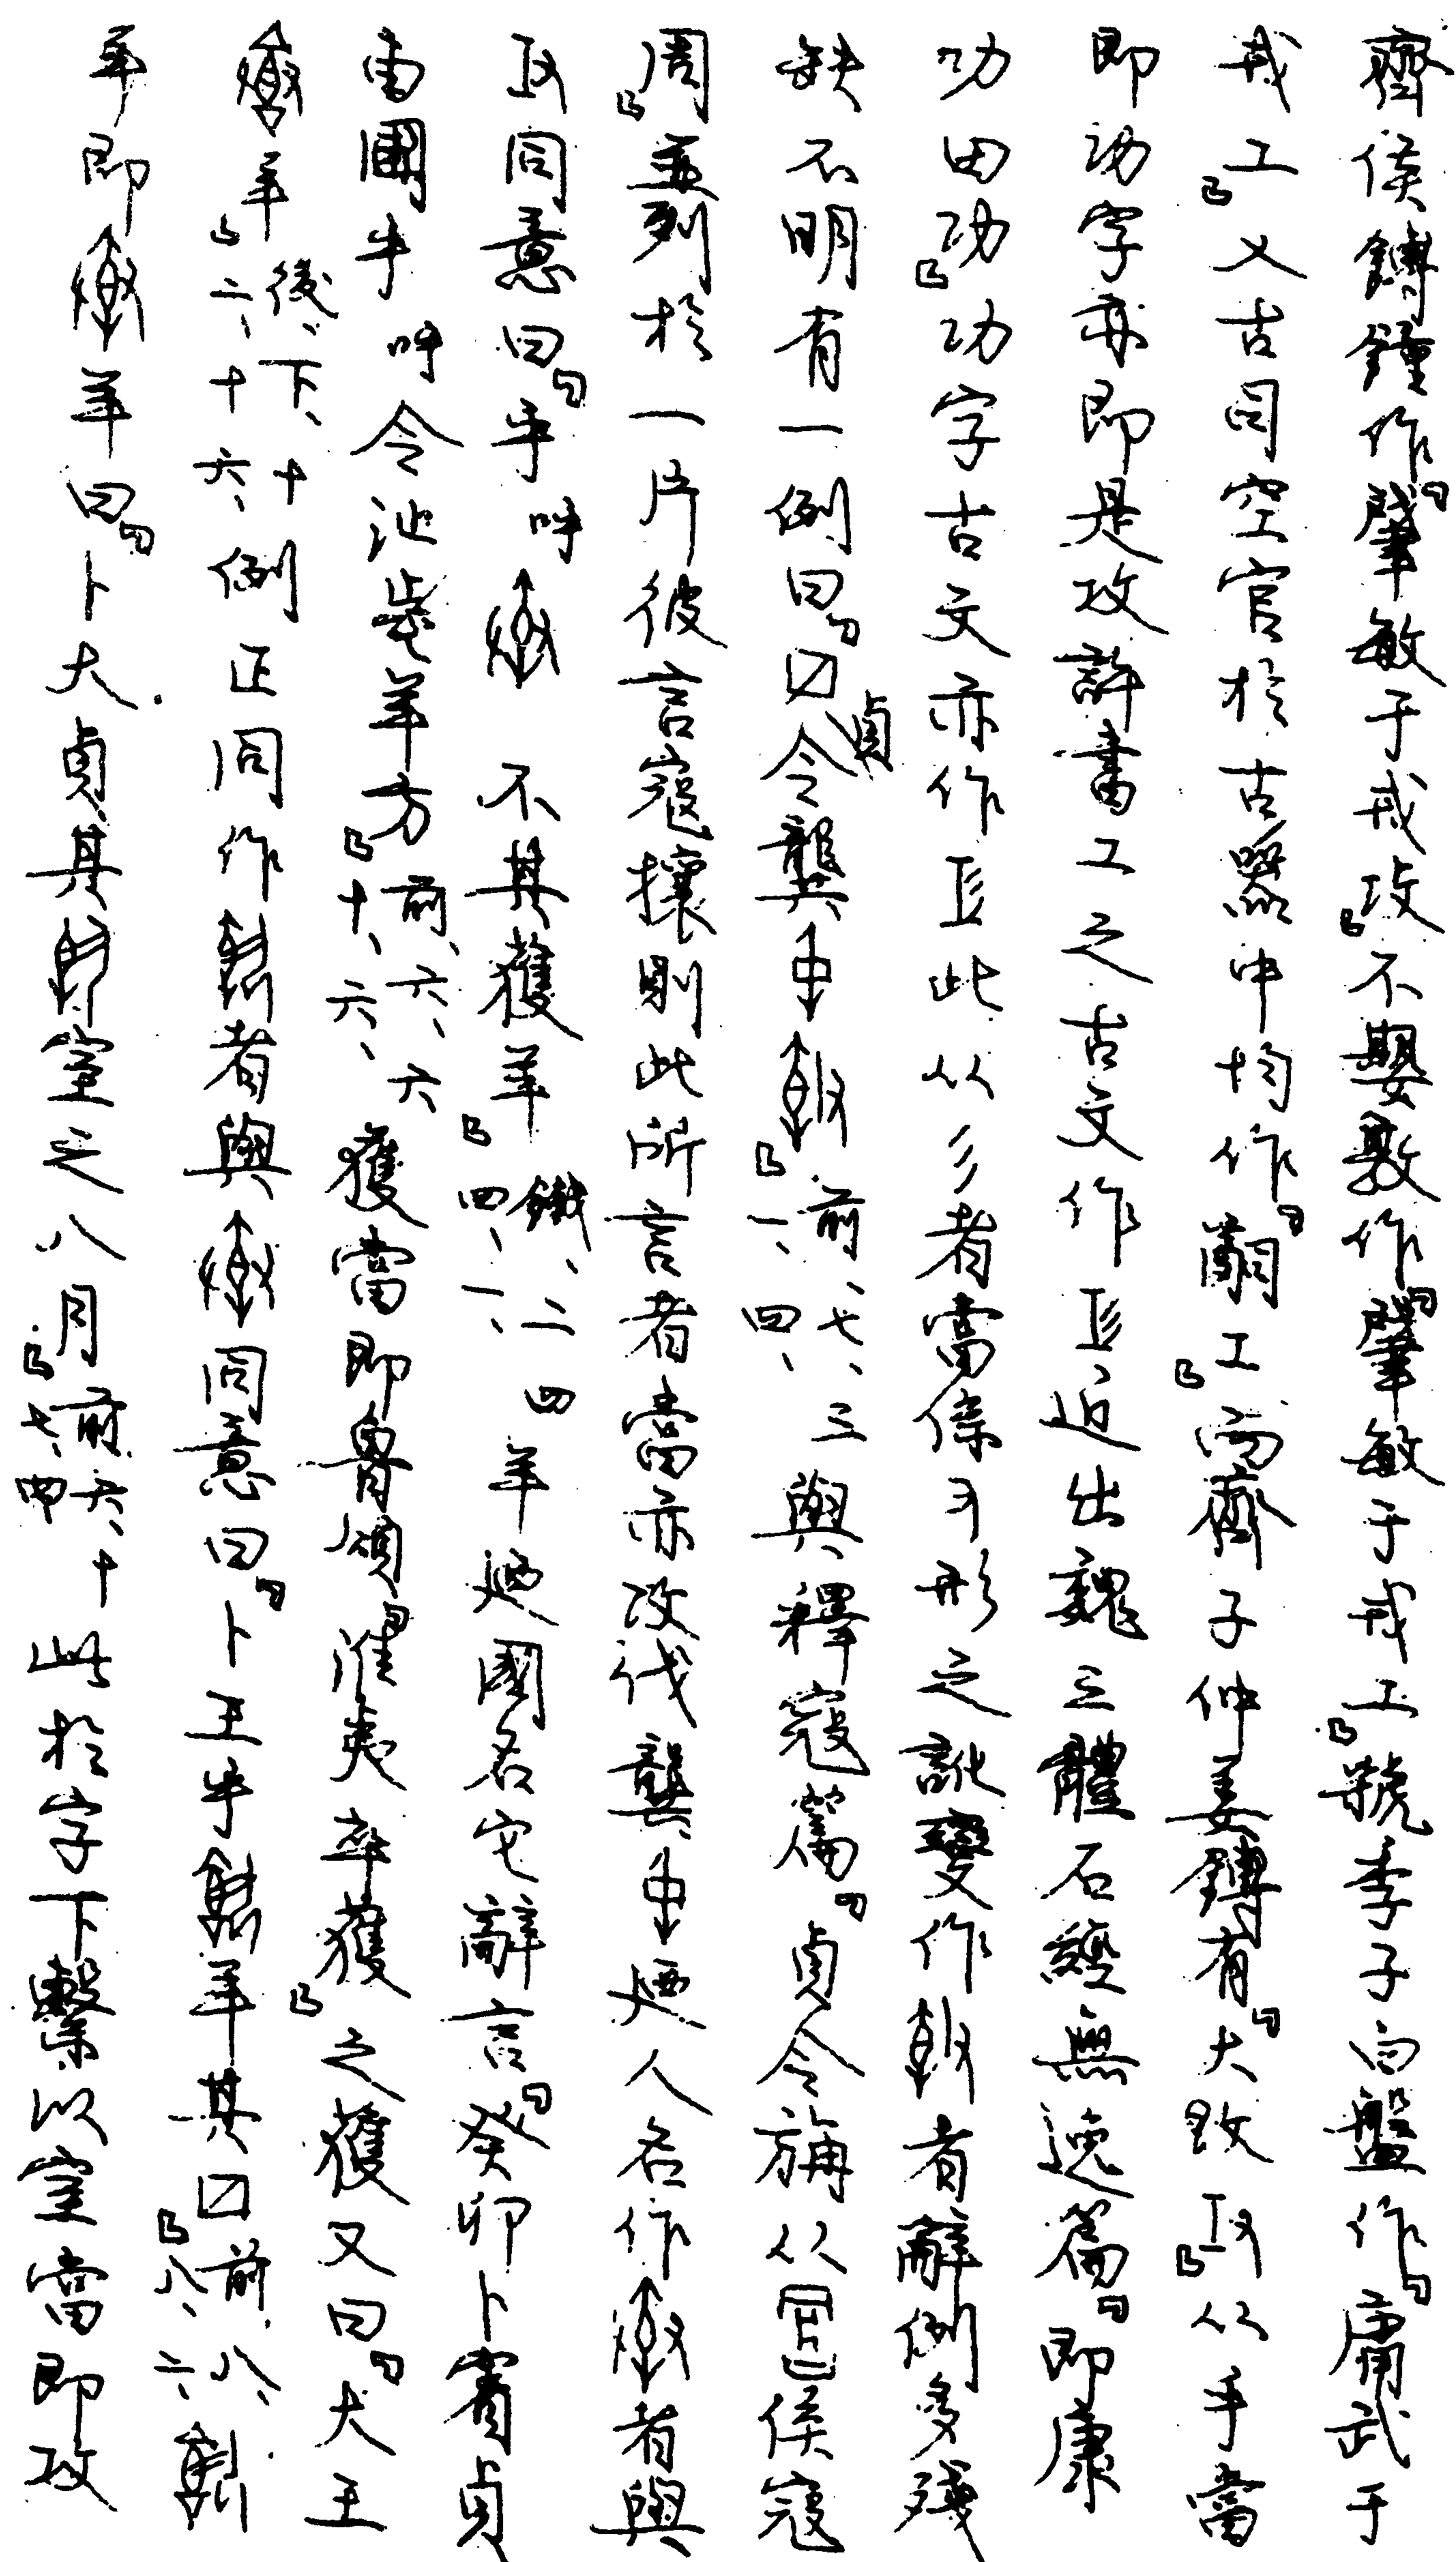 齊侯鎛鐘作「肇敏于戎攻」不𡢁敦作「肇敏于戎工」虢季子白盤作「庸武于
戎工」又古司空官於古器中均作「嗣工」而齊子仲姜鎛有「大攻㠪」以手當
即功字亦即是攻許書工之古文作𢒄近出魏三體石經無逸篇「即康
功田功」功字古文亦作𢒄此从彡者當係又形之訛變作者辭例多殘
缺不明有一例曰「☐貞令龔 」前、七、三一、四、與釋寇篇「貞令旃从侯寇
周」並列於一片彼言寇攘則此所言者當亦攻伐龔 𡏳人名作者與
同意曰「乎呼 不其獲羊」鐵、二四四、一、羊𡏳國名它辭言「癸卯卜賓貞
由圃乎呼令沚 羊方」前、六、六十、六、獲當即魯頌「淮夷卒獲」之獲又曰「大王
羊」後、下、十二、十六、例正同作者與同意曰「卜王乎 羊其☐」前、八、八、二、
羊即 羊曰「卜大貞其 室之八月」前六、十七、四此於字下繫以室當即攻